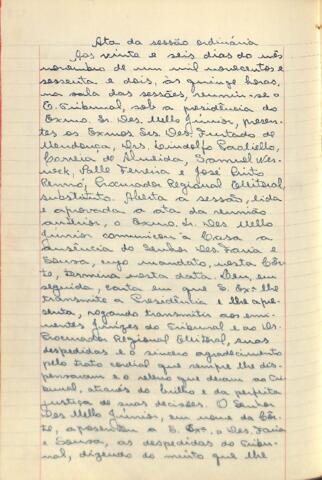 Ata da sessão ordinária
Aos vinte e seis dias do mês
novembro de um mil novecentos e
sessenta e dois, às quinze horas,
na sala das sessões, reuniu-se o
E. Tribunal, sob a presidência do
Exmo. Sr. Des. Mello Júnior, presen-
tes os Exmos Srs. Des. Furtado de
Mendonça, Drs. Lindolfo Paoliello,
Correia de Almeida, Samuel Wer-
neck, Valle Ferreira e José Pinto
Rennó, Procurador Regional Eleitoral,
substituto. Aberta a sessão, lida
e aprovada a ata da reunião
anterior, o Exmo. Sr. Des. Mello
Júnior comunicou à Casa a
ausência do Senhor Des. Faria e
Sousa, cujo mandato, nesta Côr-
te, termina nesta data. Leu, em
seguida, carta em que S. Exª lhe
transmite a Presidência e lhe apre-
senta, rogando transmitir aos emi-
nentes Juízes do Tribunal e ao Dr.
Procurador Regional Eleitoral, suas
despedidas e o sincero agradecimento
pelo trato cordial que sempre lhe dis-
pensaram e o relevo que deram ao Tri-
bunal, através do brilho e da perfeita
justiça de suas decisões. O Senhor
Des. Mello Júnior, em nome da Côr-
te, apresentou a S. Exª, o Des. Faria
e Sousa, as despedidas do Tribu-
nal, dizendo do muito que lhe